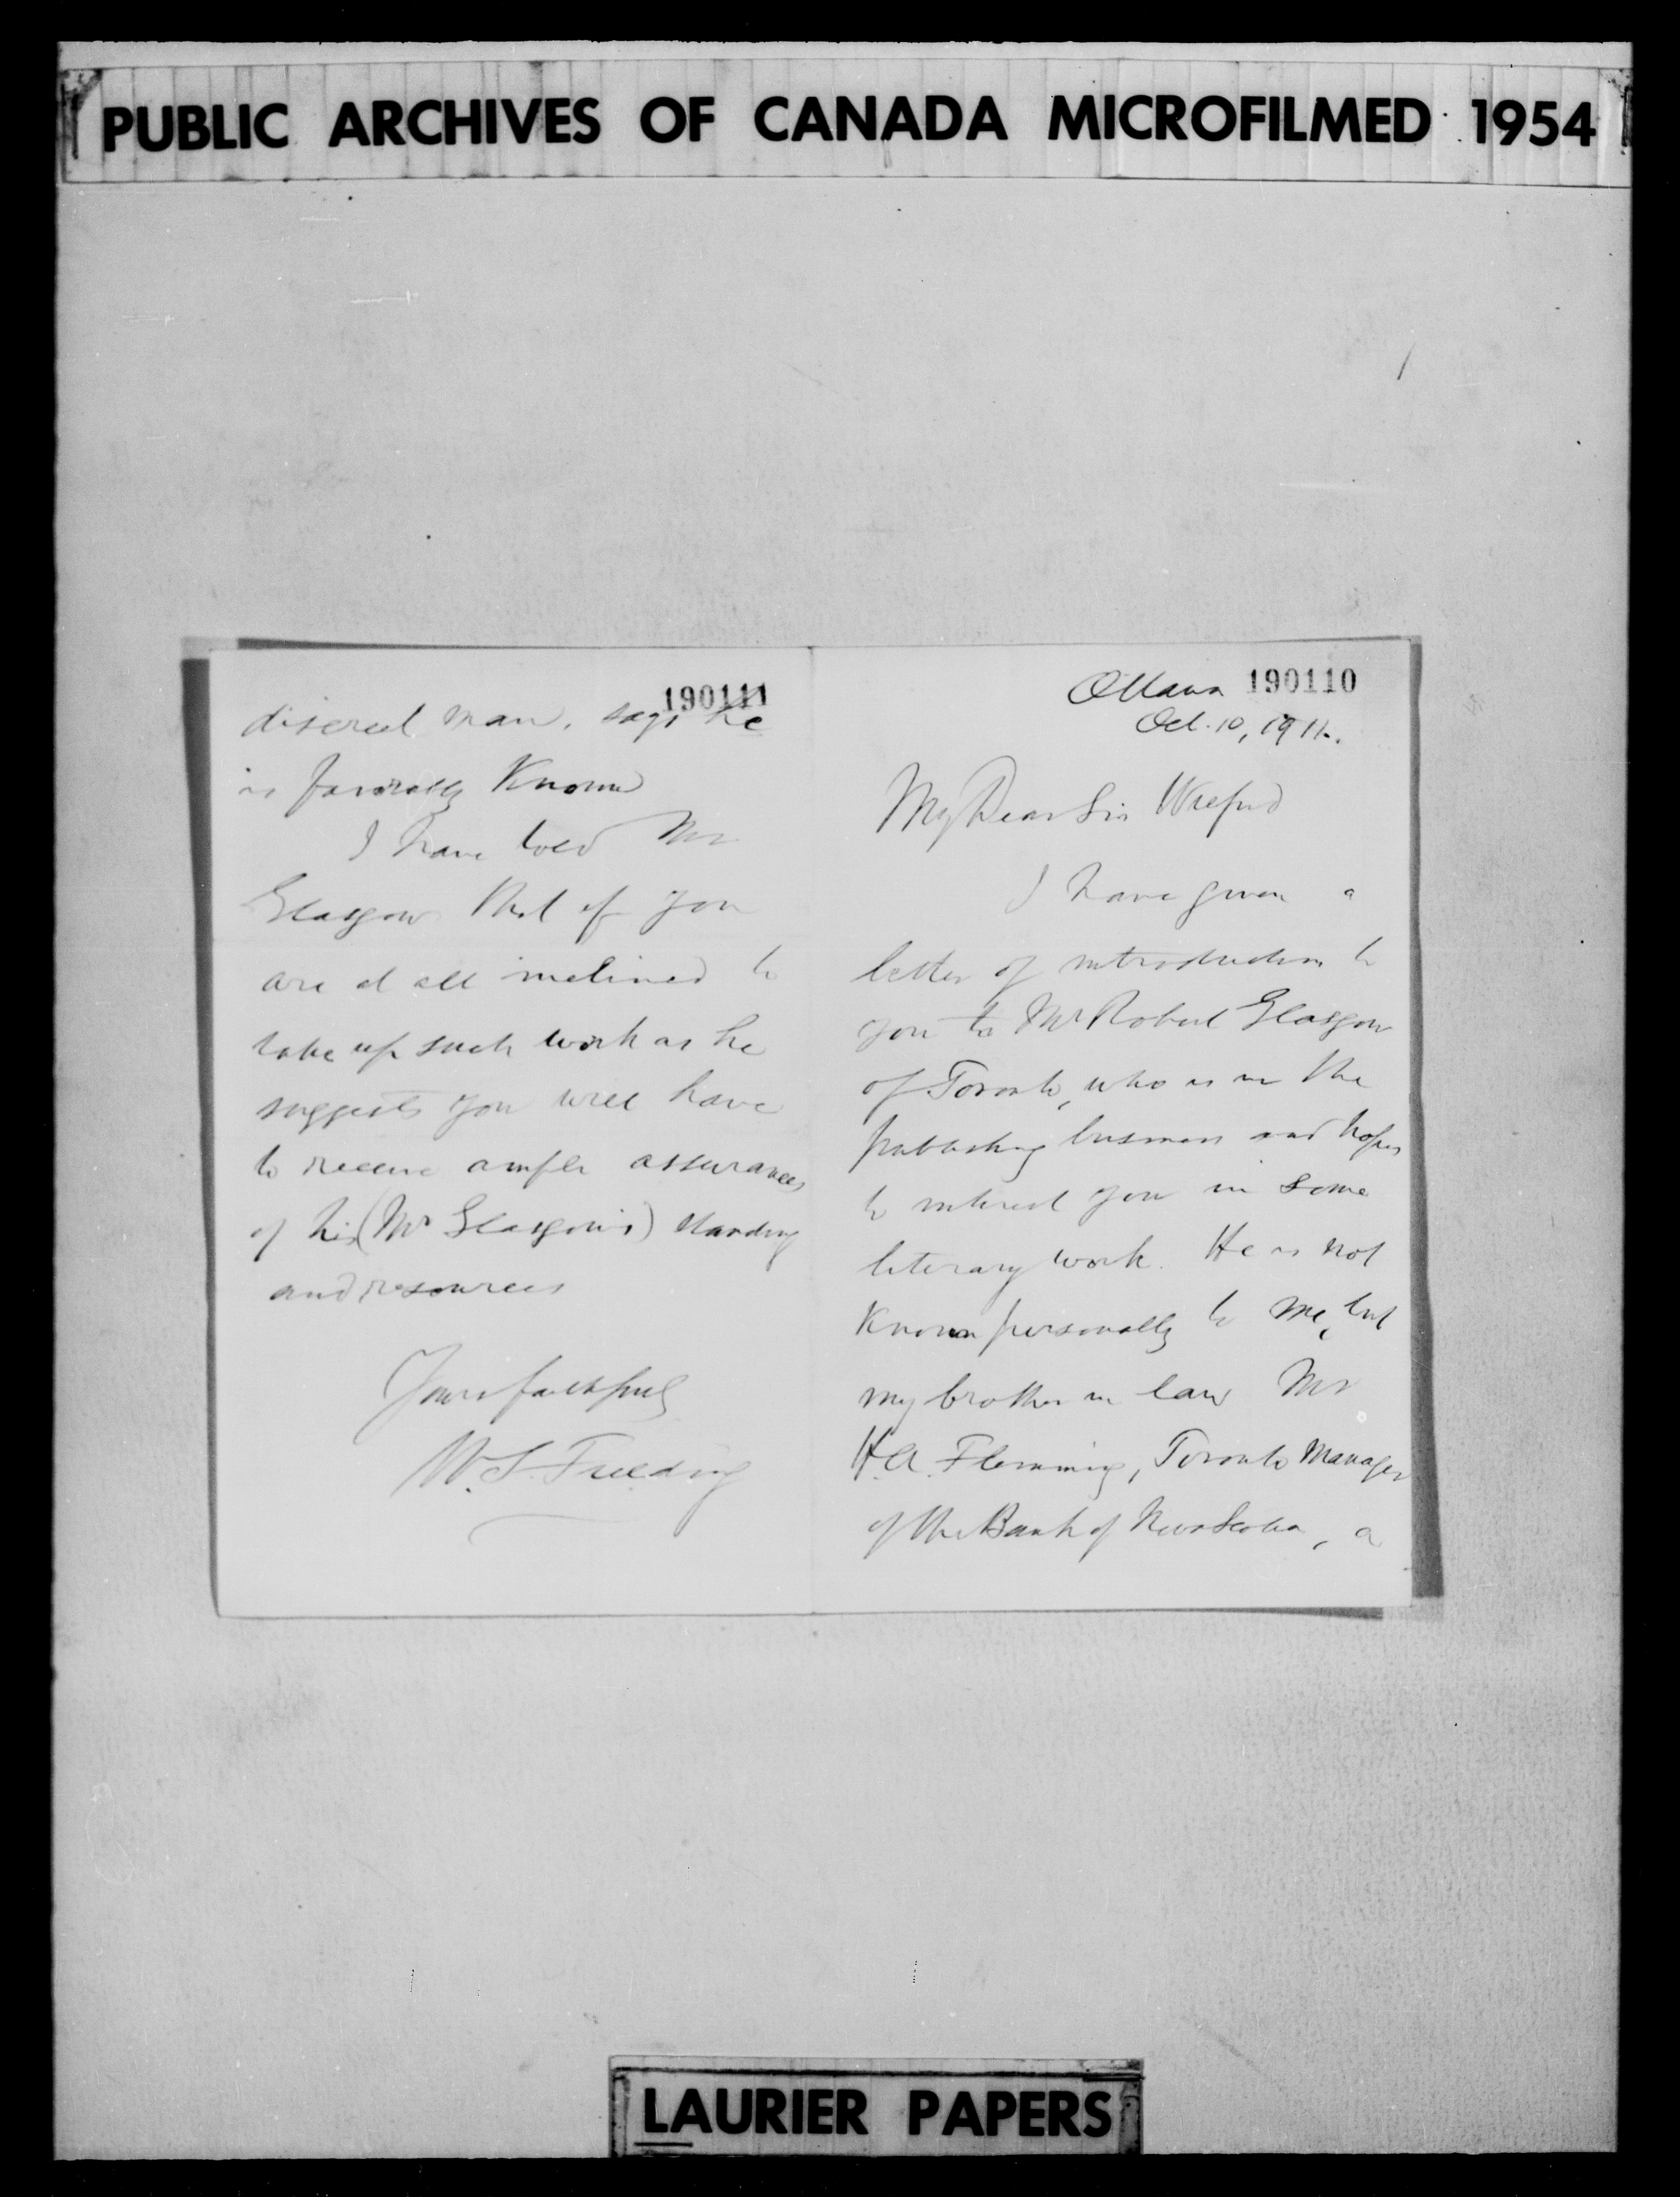 PUBLIC ARCHIVES OF CANADA MICROFILMED 1954
190110
Ottawa
Oct. 10, 1911.
My Dear Sir Wilfrid
I have given a
letter of introduction to
you to Mr Robert Glasgow
of Toronto, who is in the
publishing business and hopes
to interest you in some
literary work. He is not
known personally to me, but
my brother in law Mr
H.A. Flemming, Toronto Manager
of the Bank of Nova Scotia, a
190111
discreet man, says he
is favorably known
I have told Mr
Glasgow that if you
are at all inclined to
take up such work as he
suggests you will have
to receive ample assurances
of his (Mr Glasgow's) standing
and resources
Yours faithfully
W.S. Fielding
LAURIER PAPERS